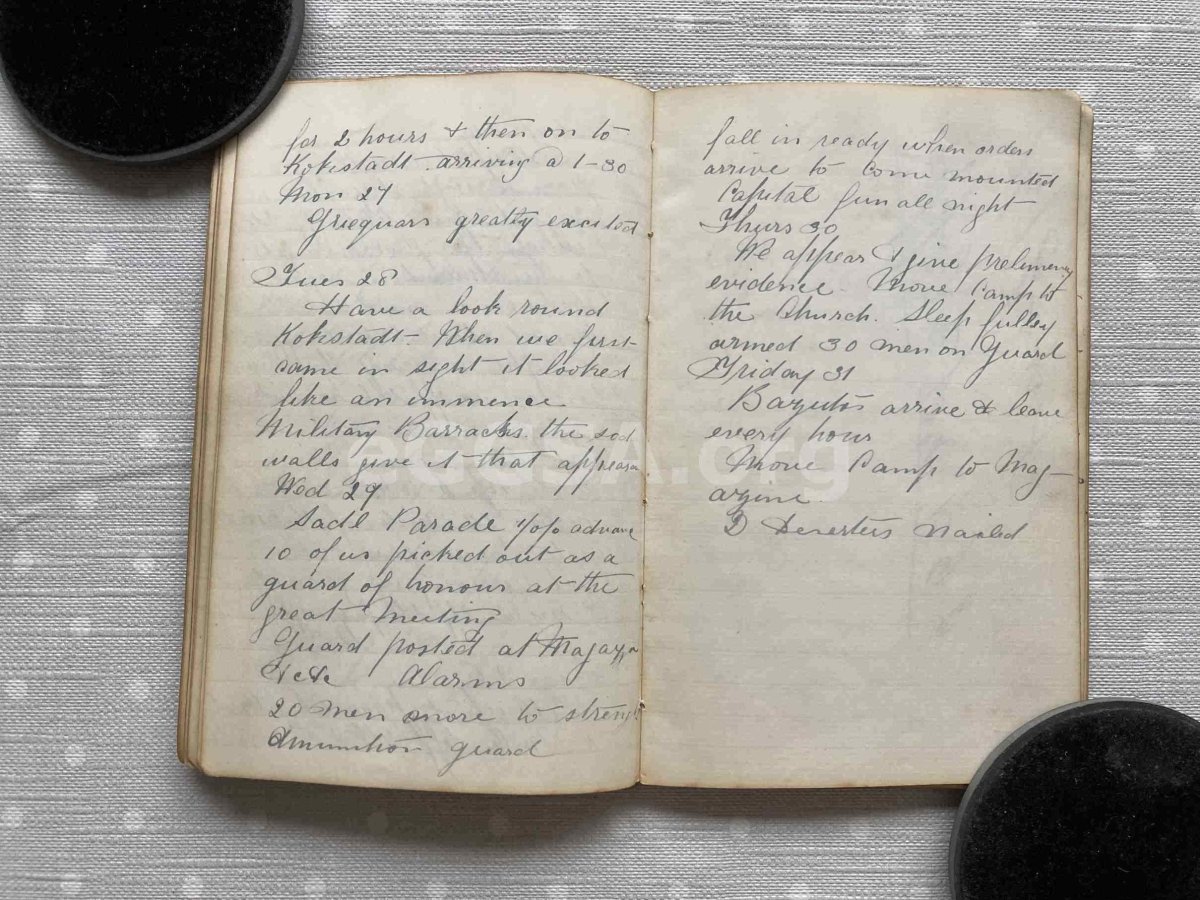 for 2 hours & then on to
Kokstadt arriving @ 1-30
Mon 27
Griequars greatly excited
Tues 28
Have a look round
Kokstadt - When we first
came in sight it looked
like an immence
Military Barracks. the sod
walls give it that appeara
Wed 29
Sadl Parade advance
10 of us picked out as a
guard of honour at the
great Meeting
Guard posted at Magaz
Alarms
20 men more to streng
Amunition guard
fall in ready when orders
arrive to come mounted
Capital fun all night
Thurs 30
We appear & give prelimeny
evidence. Move Camp to
the Church. Sleep fulley
armed 30 men on Guard
Friday 31
Bazutos arrive & leave
every hour
Move Camp to Mag-
azine.
2 Deserters nailed
eGGSA.org